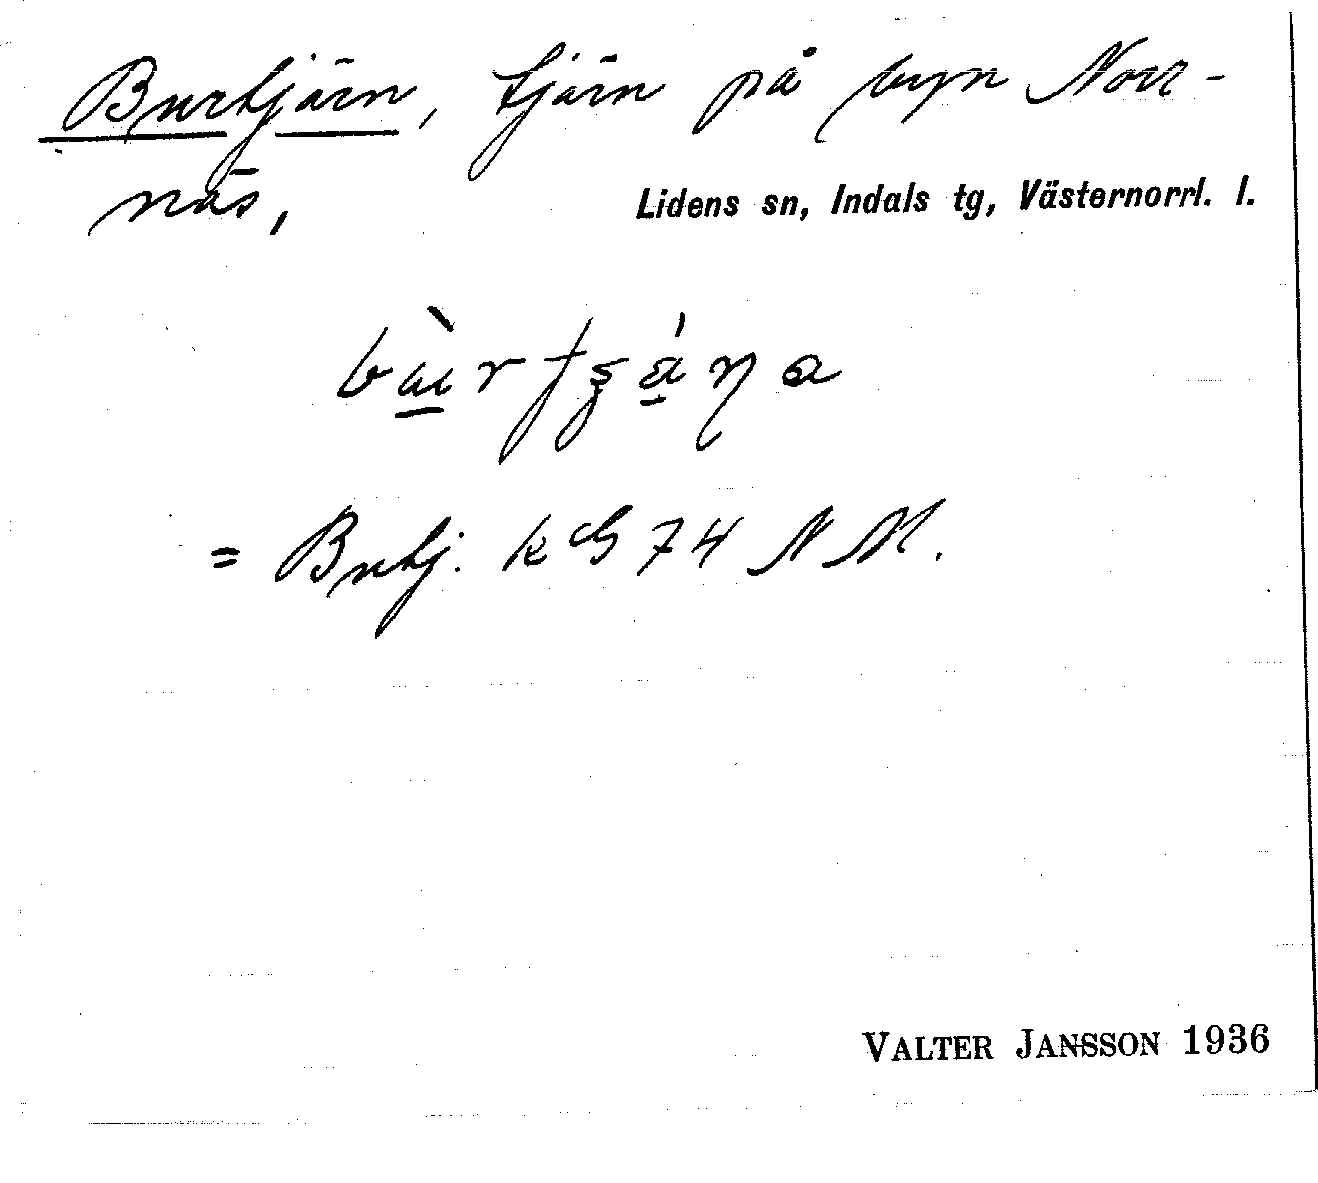 Burtjärn, tjärn på byn Norr-
näs,
Lidens sn, Indals tg, Västernorrl. l.
= Butj. k NM.
VALTER JANSSON 1936